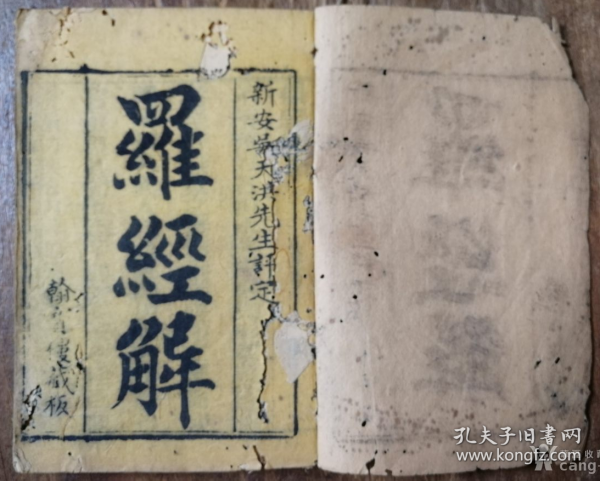 新安吳天洪先生評定
羅經解
翰 樓藏板
孔夫子旧书网
www.kongfz.com
cang.com